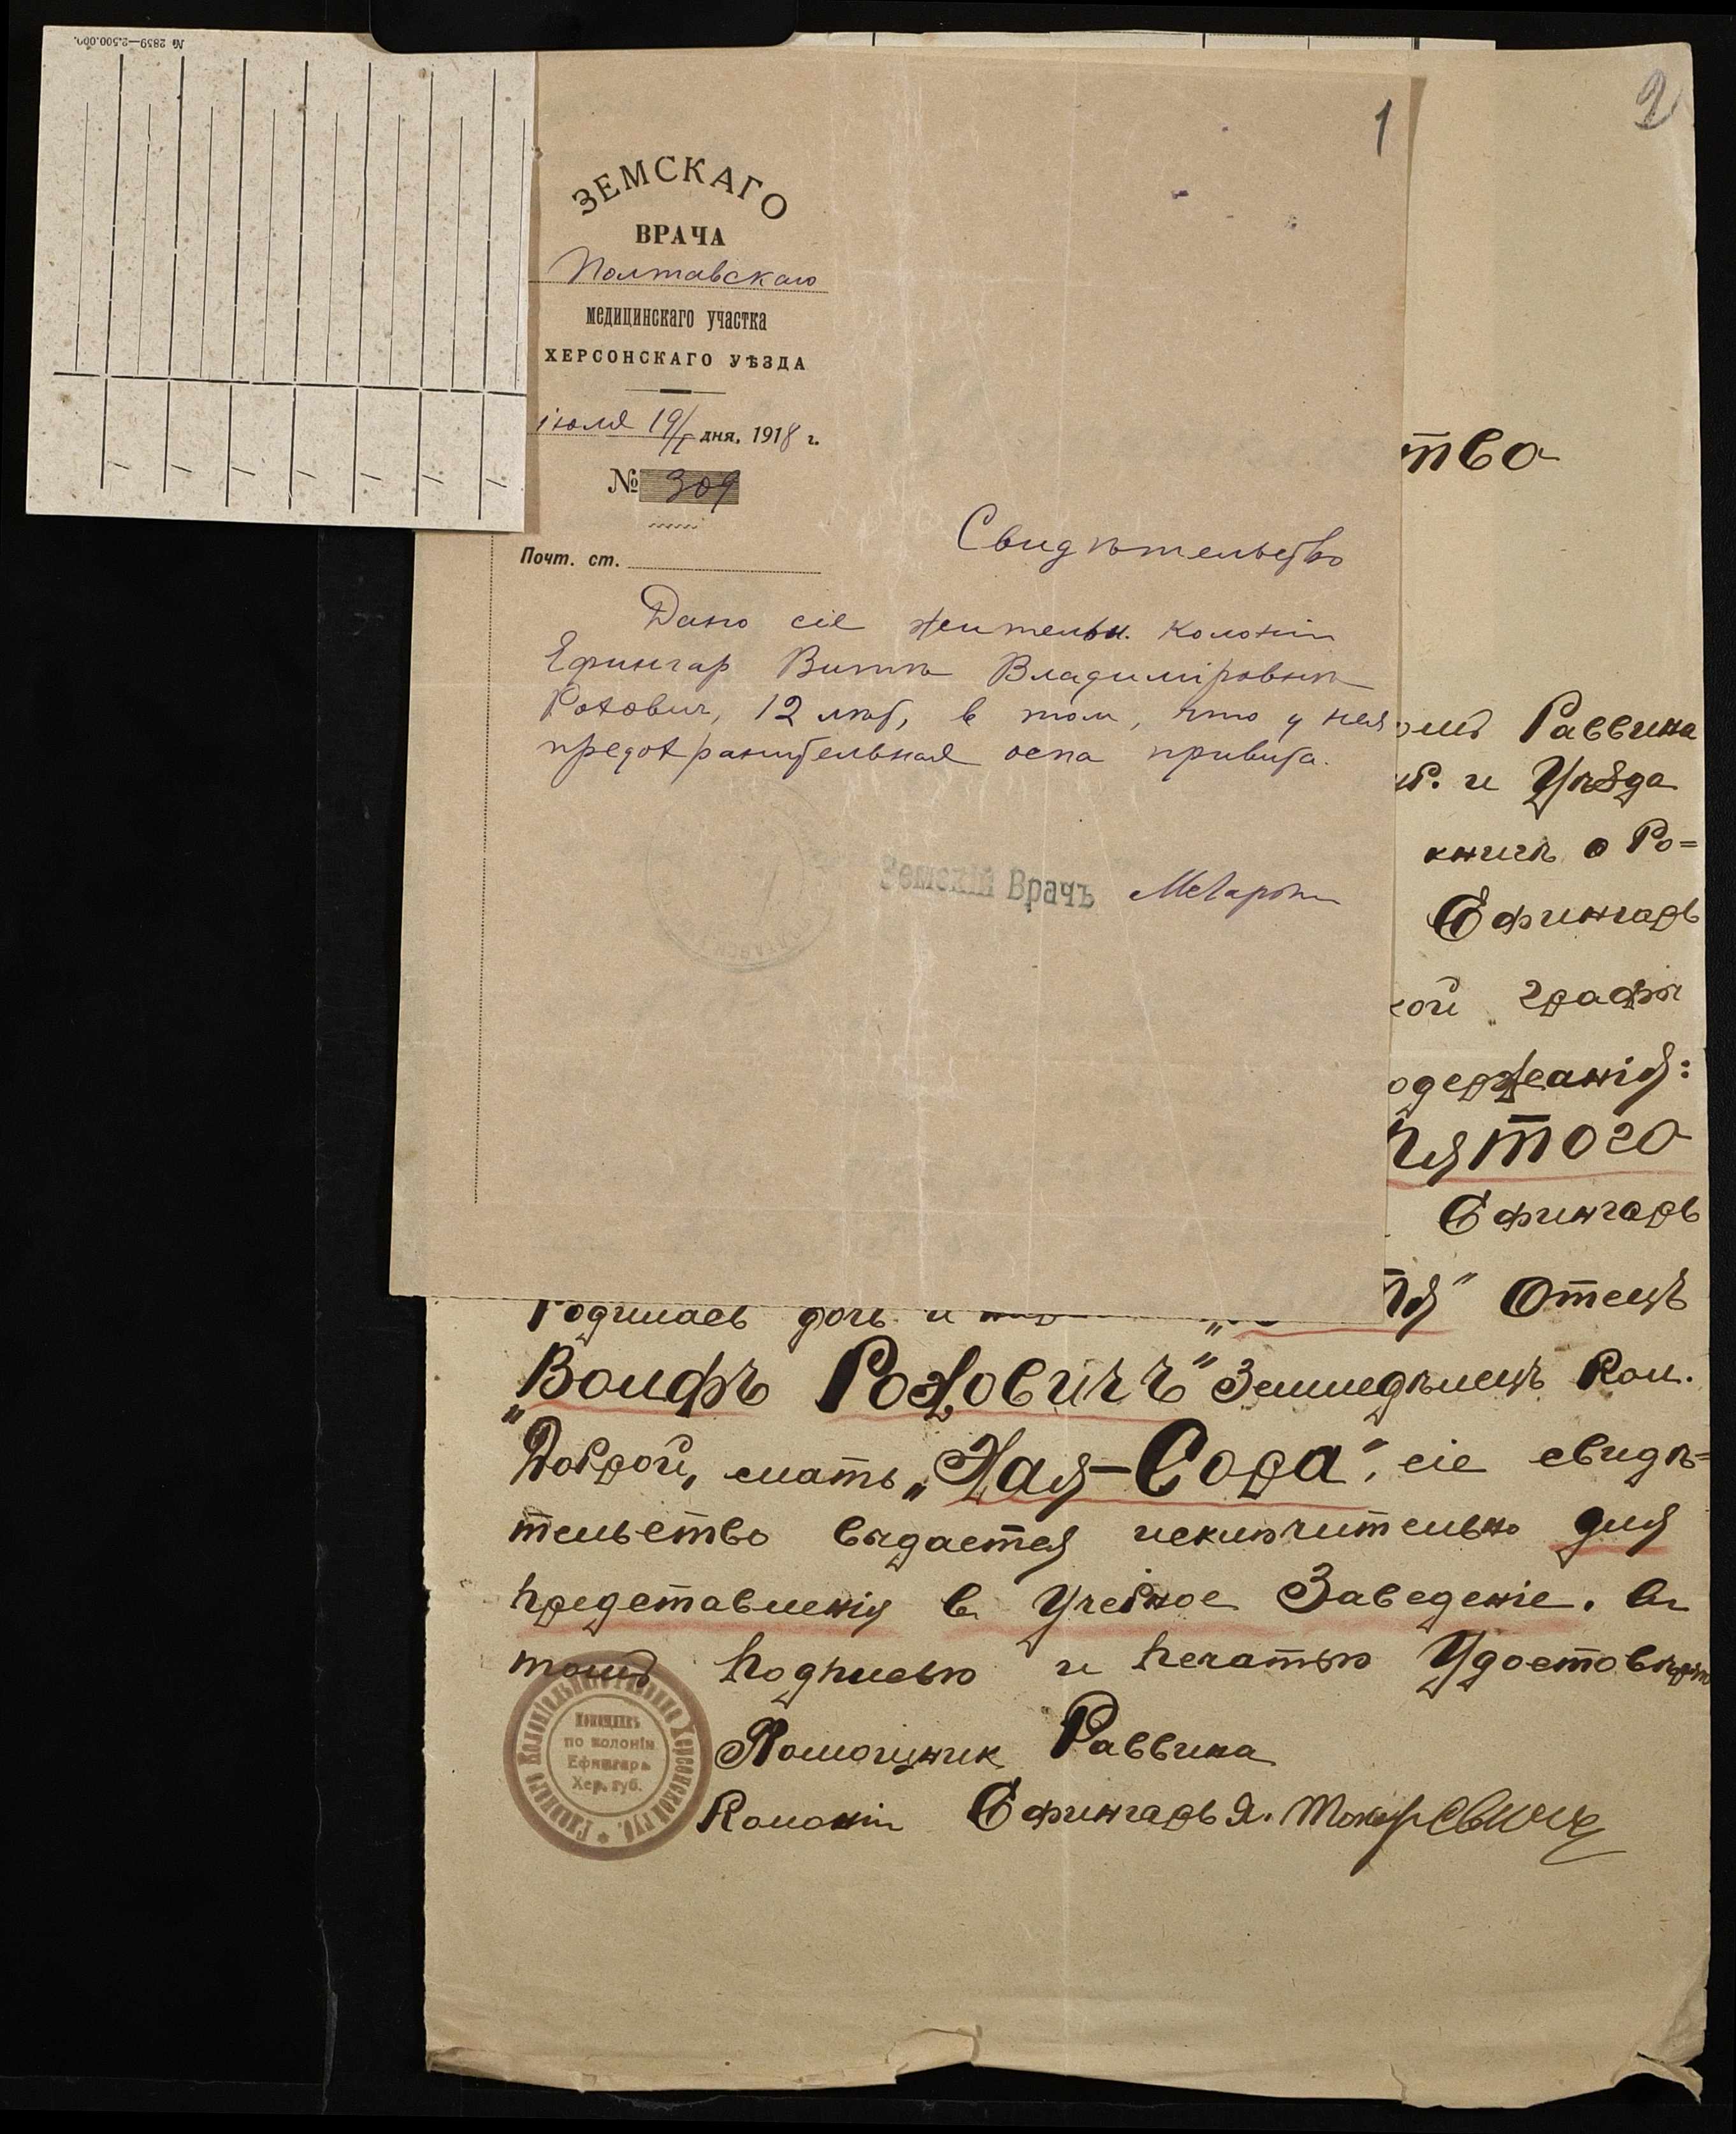 № 2859—2.500.000.
1
2
ЗЕМСКАГО
ВРАЧА
Полтавскаго
МЕДИЦИНСКАГО УЧАСТКА
ХЕРСОНСКАГО УѢЗДА
іюля 19/ дня, 1918 г.
№ 309
Почт. ст.
Свидѣтельство
Дано сіе жительн. колоніи
Ефингар Витѣ Владиміровнѣ
Рохович, 12 лѣт, в том, что у нея
предохранительная оспа привита.
Земскій Врачъ
тво
Раввина
и Уѣзда
книгѣ о Ро=
Ефингаръ
графѣ
одержанія:
пятого
Ефингаръ
Отецъ
Родилась дочь и
„Волфъ Роховичъ" Земледѣлецъ Кол.
Доброй, мать „Хая-Сора", сіе свидѣ=
тельство выдается исключительно для
представленія в Учебное Заведеніе. В
томъ подписью и печатью Удостовѣряю
Помощник Раввина
Колоніи Ефингаръ Я.
Помощникъ
по колоніи
Ефингаръ
Хер. губ.